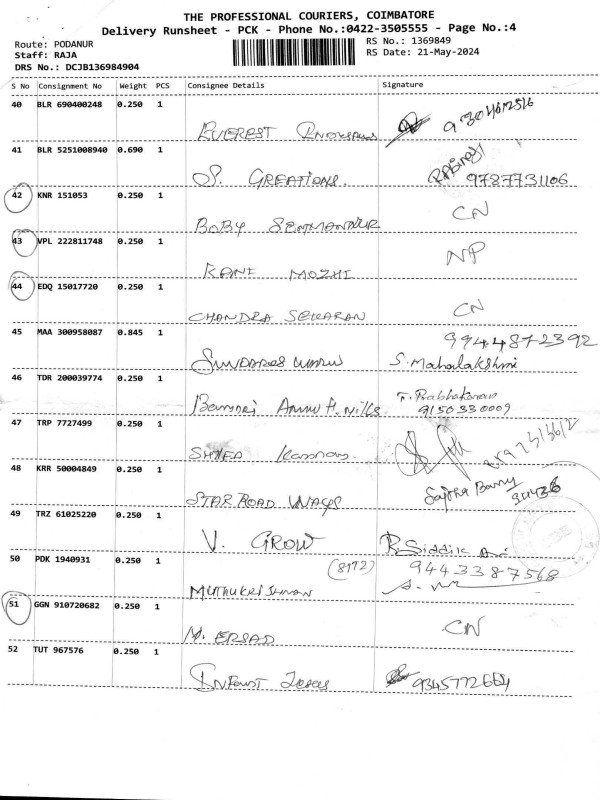 THE PROFESSIONAL COURIERS, COIMBATORE
Delivery Runsheet - PCK - Phone No.:0422-3505555 - Page No.:4
Route: PODANUR
Staff: RAJA
DRS No.: DCJB136984904
RS No.: 1369849
RS Date: 21-May-2024
S No Consignment No Weight PCS Consignee Details Signature
40 BLR 690400248 0.250 1
EVEREST
41 BLR 5251008940 0.690 1
S. CREATIONS. 9787731106
42 KNR 151053 0.250 1 CN
BOBY
43 VPL 222811748 0.250 1 NP
KANI MOZHI
44 EDQ 15017720 0.250 1 CN
CHANDRA SEKARAN
45 MAA 300958087 0.845 1 9944872392
S. Mahalakshmi
46 TDR 200039774 0.250 1 T. Prabhakaran
9150330009
47 TRP 7727499 0.250 1
48 KRR 50004849 0.250 1
STAR ROAD WAYS
49 TRZ 61025220 0.250 1
V. GROW R. Siddik
50 PDK 1940931 0.250 1 (8172) 9443387568
MUTHUKRISHNAN
51 GGN 910720682 0.250 1 CN
M. ERSAD
52 TUT 967576 0.250 1
INFANT 9345772664